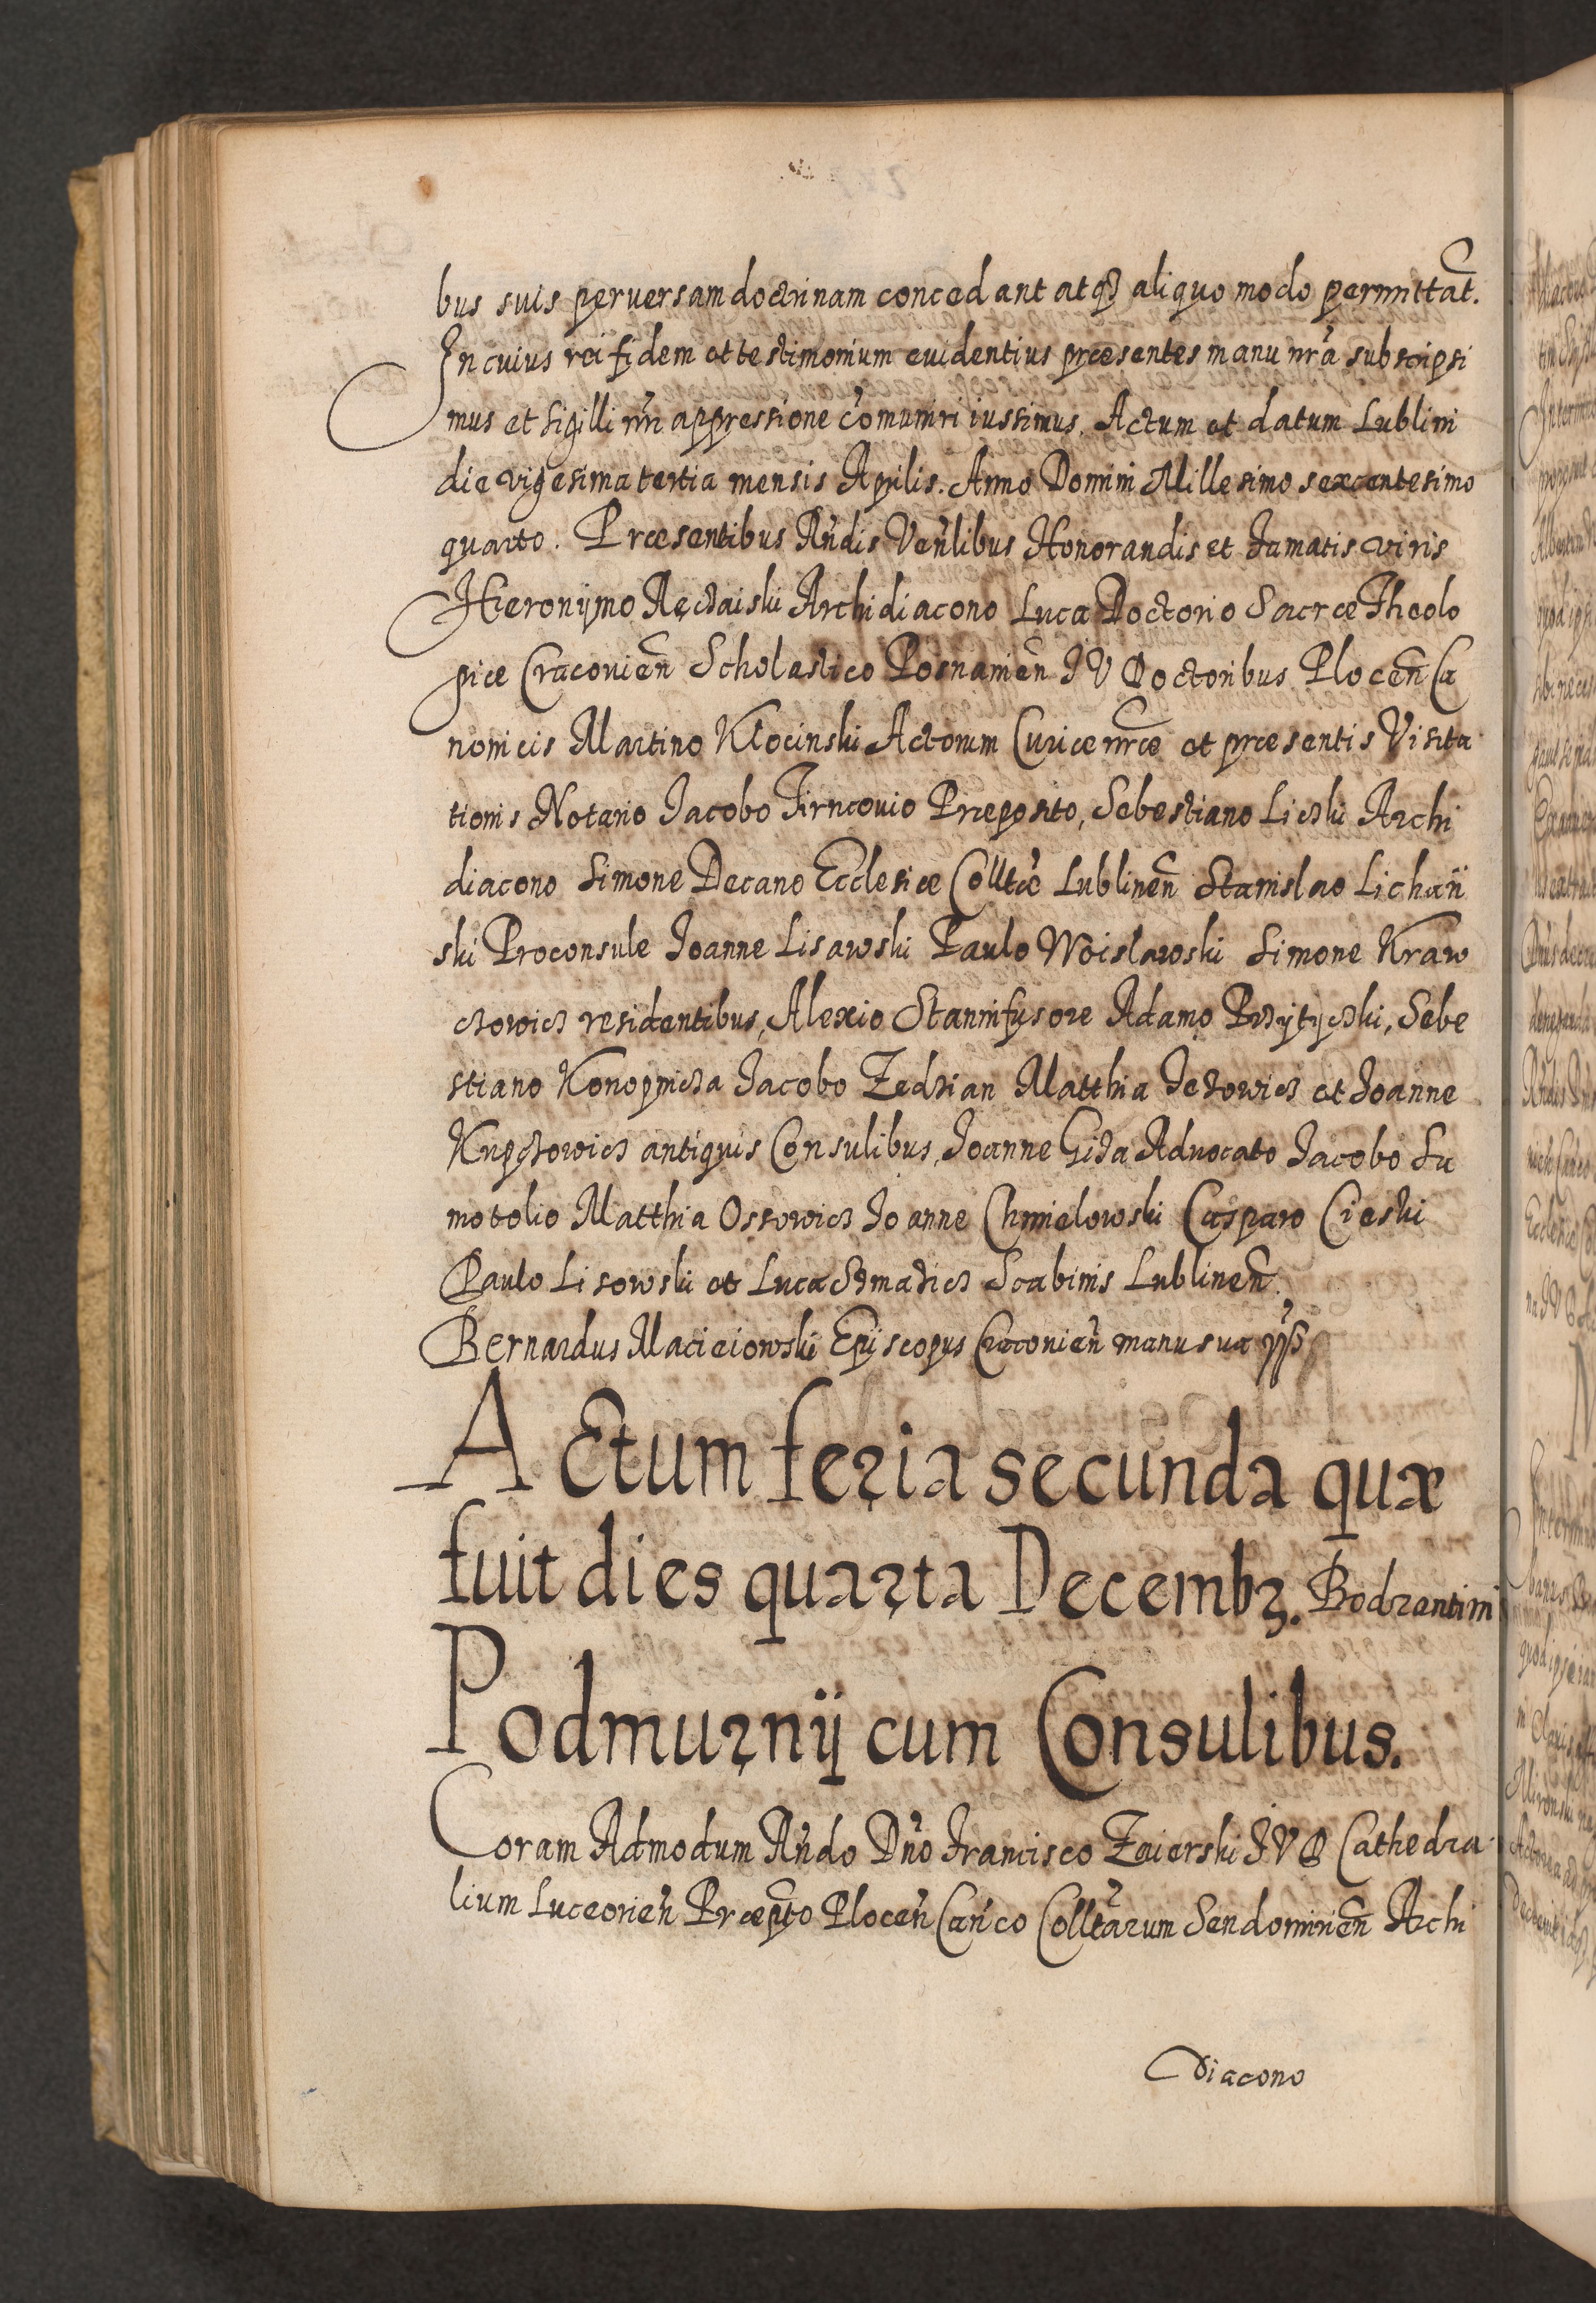 bus suis peruersam doctrinam concedant atqȝ aliquo modo permittat̃.
In cuius rei fidem et testimonium euidentius præsentes manu nr̃a subscripsi
mus et sigilli nr̃i appressione com̃uniri iussimus. Actum et datum Lublini
die vigesima tertia mensis Aprilis. Anno Domini Millesimo sexcentesimo
quarto. Præsentibus Rñdis Veñlibus Honorandis et famatis viris
Hieronymo Archidiacono Luca Doctorio Sacræ Theolo
giæ Cracovieñ Scholastico Posnanieñ I V Doctoribus Ploceñ Ca
nonicis Martino Kłocinski Actorum Curiæ nr̃æ et præsentis Visita
tionis Notario Jacobo Præposito, Sebestiano Licȝki Archi
diacono Simone Decano Ecclesiæ Coll̃tæ Lublineñ Stanislao Lichań
ski Proconsule Joanne Lisawski Paulo Woislawski Simone Kraw
cȝowicȝ residentibus, Alexio Stannifusore Adamo Pȝytycȝki, Sebe
stiano Konopnicȝa Jacobo Zedȝian Matthia Jeȝowicȝ et Joanne
Krupcȝowicȝ antiquis Consulibus, Joanne Giȝa Advocato Jacobo Su
motolio Matthia Ossowicȝ Joanne Chmielowski Casparo Cieski
Paulo Lisowski et Luca Scabinis Lublineñ.
Bernardus Macieiowski Episcopus Cracouieñ manu sua
ACtum feria secunda quæ
fuit dies quarta Decembȝ. Bodzantini
Podmurnij cum Consulibus.
Coram Admodum Rñdo Dño Francisco Zaierski I V D Cathedra
lium Luceorieñ Præpto Ploceñ Cañco Coll̃tarum Sendomirieñ Archi
diacono